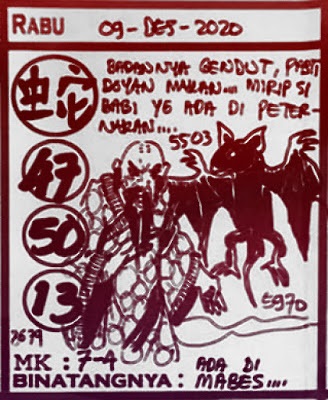 RABU 09-DES-2020
BADANNYA GENDUT, PASTI
DOYAN MAKAN.... MIRIP SI
BABI YG ADA DI PETER-
NAKAN....
蛇
5503
47
50
13
5970
7679
MK : 7-4
ADA DI
BINATANGNYA : MABES....